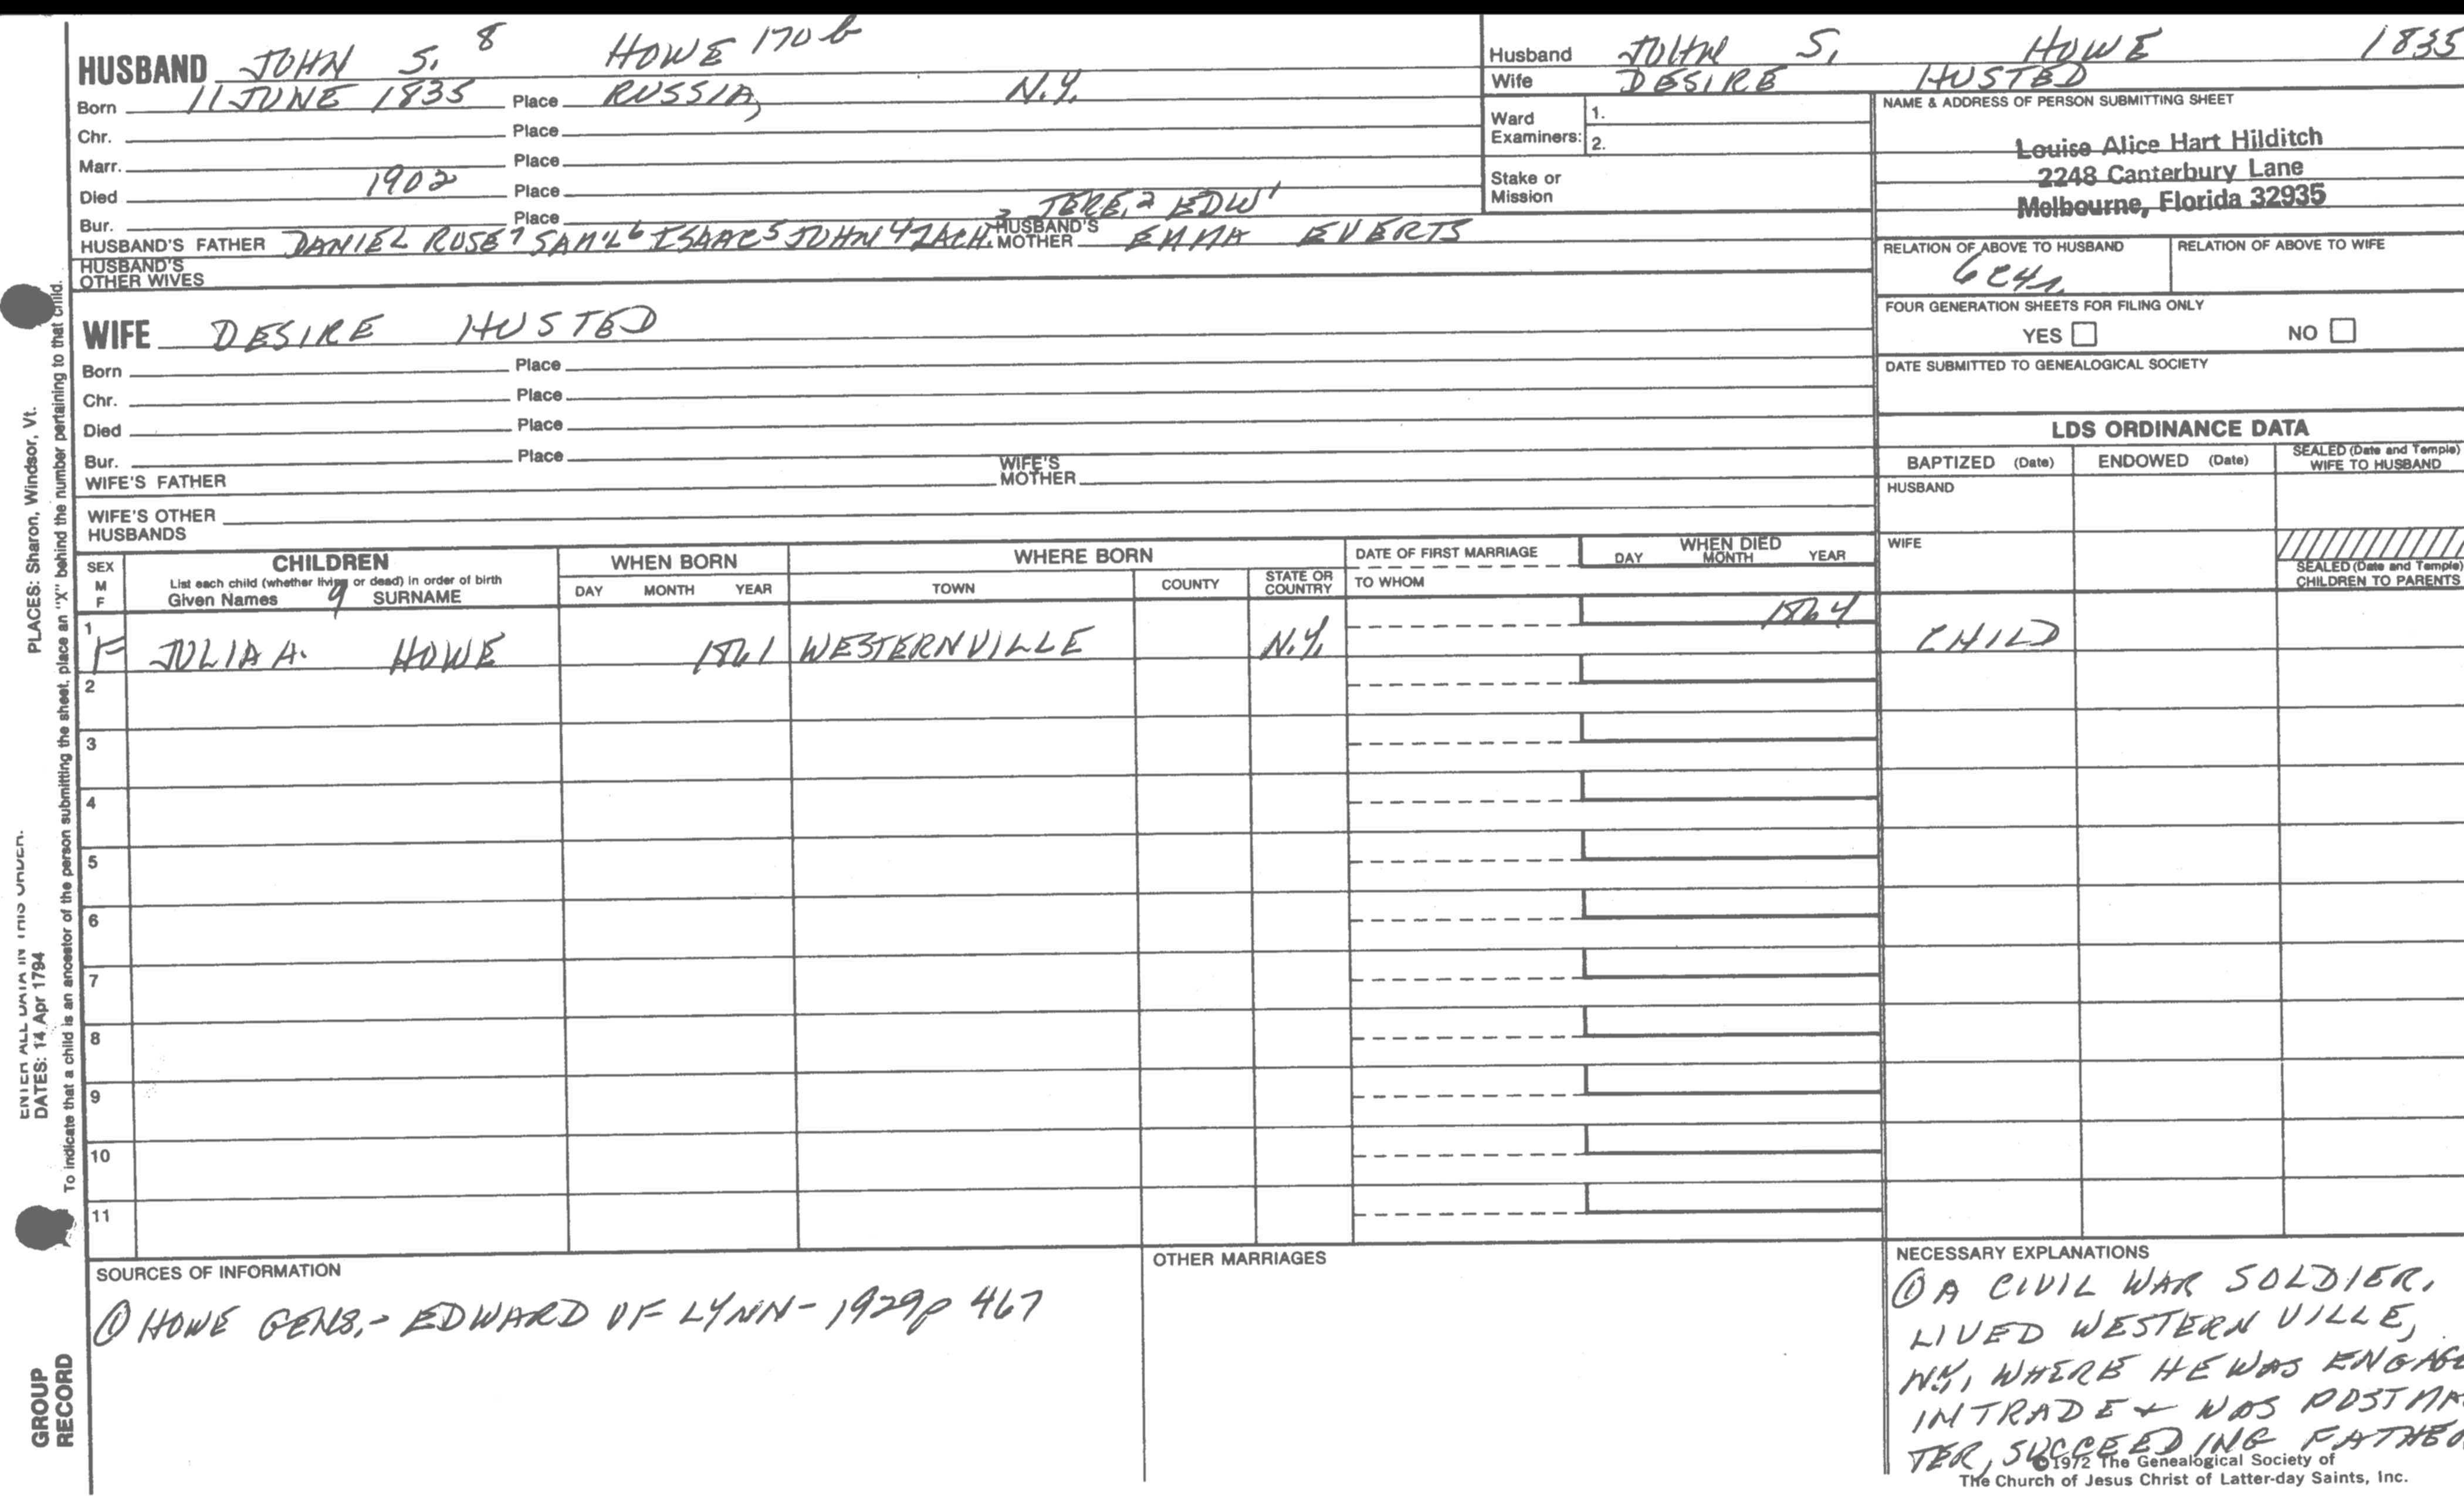 HUSBAND JOHN S. 8 HOWE 170 b
Born 11 JUNE 1835 Place RUSSIA, N.Y.
Chr. Place
Marr. Place
Died 1902 Place
Bur. Place
HUSBAND'S FATHER DANIEL ROSE 7 SAM'L 6 ISAAC 5 JOHN 4 ZACH. 3 JERE. 2 EDW 1 HUSBAND'S MOTHER EMMA EVERTS
HUSBAND'S OTHER WIVES
Husband JOHN S. HOWE 1835
Wife DESIRE HUSTED
Ward Examiners: 1.
2.
Stake or Mission
NAME & ADDRESS OF PERSON SUBMITTING SHEET
Louise Alice Hart Hilditch
2248 Canterbury Lane
Melbourne, Florida 32935
RELATION OF ABOVE TO HUSBAND RELATION OF ABOVE TO WIFE
FOUR GENERATION SHEETS FOR FILING ONLY
YES NO
DATE SUBMITTED TO GENEALOGICAL SOCIETY
WIFE DESIRE HUSTED
Born Place
Chr. Place
Died Place
Bur. Place
WIFE'S FATHER WIFE'S MOTHER
WIFE'S OTHER HUSBANDS
LDS ORDINANCE DATA
BAPTIZED (Date) ENDOWED (Date) SEALED (Date and Temple) WIFE TO HUSBAND
HUSBAND
WIFE
SEALED (Date and Temple) CHILDREN TO PARENTS
SEX M F
CHILDREN
List each child (whether living or dead) in order of birth
Given Names 9 SURNAME
WHEN BORN
DAY MONTH YEAR
WHERE BORN
TOWN COUNTY STATE OR COUNTRY
DATE OF FIRST MARRIAGE
TO WHOM
WHEN DIED
DAY MONTH YEAR
1 F JULIA A. HOWE 1861 WESTERNVILLE N.Y. 1864 CHILD
2
3
4
5
6
7
8
9
10
11
SOURCES OF INFORMATION
① HOWE GENS.- EDWARD OF LYNN- 1929 p 467
OTHER MARRIAGES
NECESSARY EXPLANATIONS
① A CIVIL WAR SOLDIER,
LIVED WESTERNVILLE,
N.Y., WHERE HE WAS ENGAGE
IN TRADE + WAS POSTMA
TER, SUCCEEDING FATHER
©1972 The Genealogical Society of
The Church of Jesus Christ of Latter-day Saints, Inc.
PLACES: Sharon, Windsor, Vt.
To indicate that a child is an ancestor of the person submitting the sheet, place an "X" behind the number pertaining to that child.
ENTER ALL DATA IN THIS ORDER.
DATES: 14 Apr 1794
GROUP
RECORD